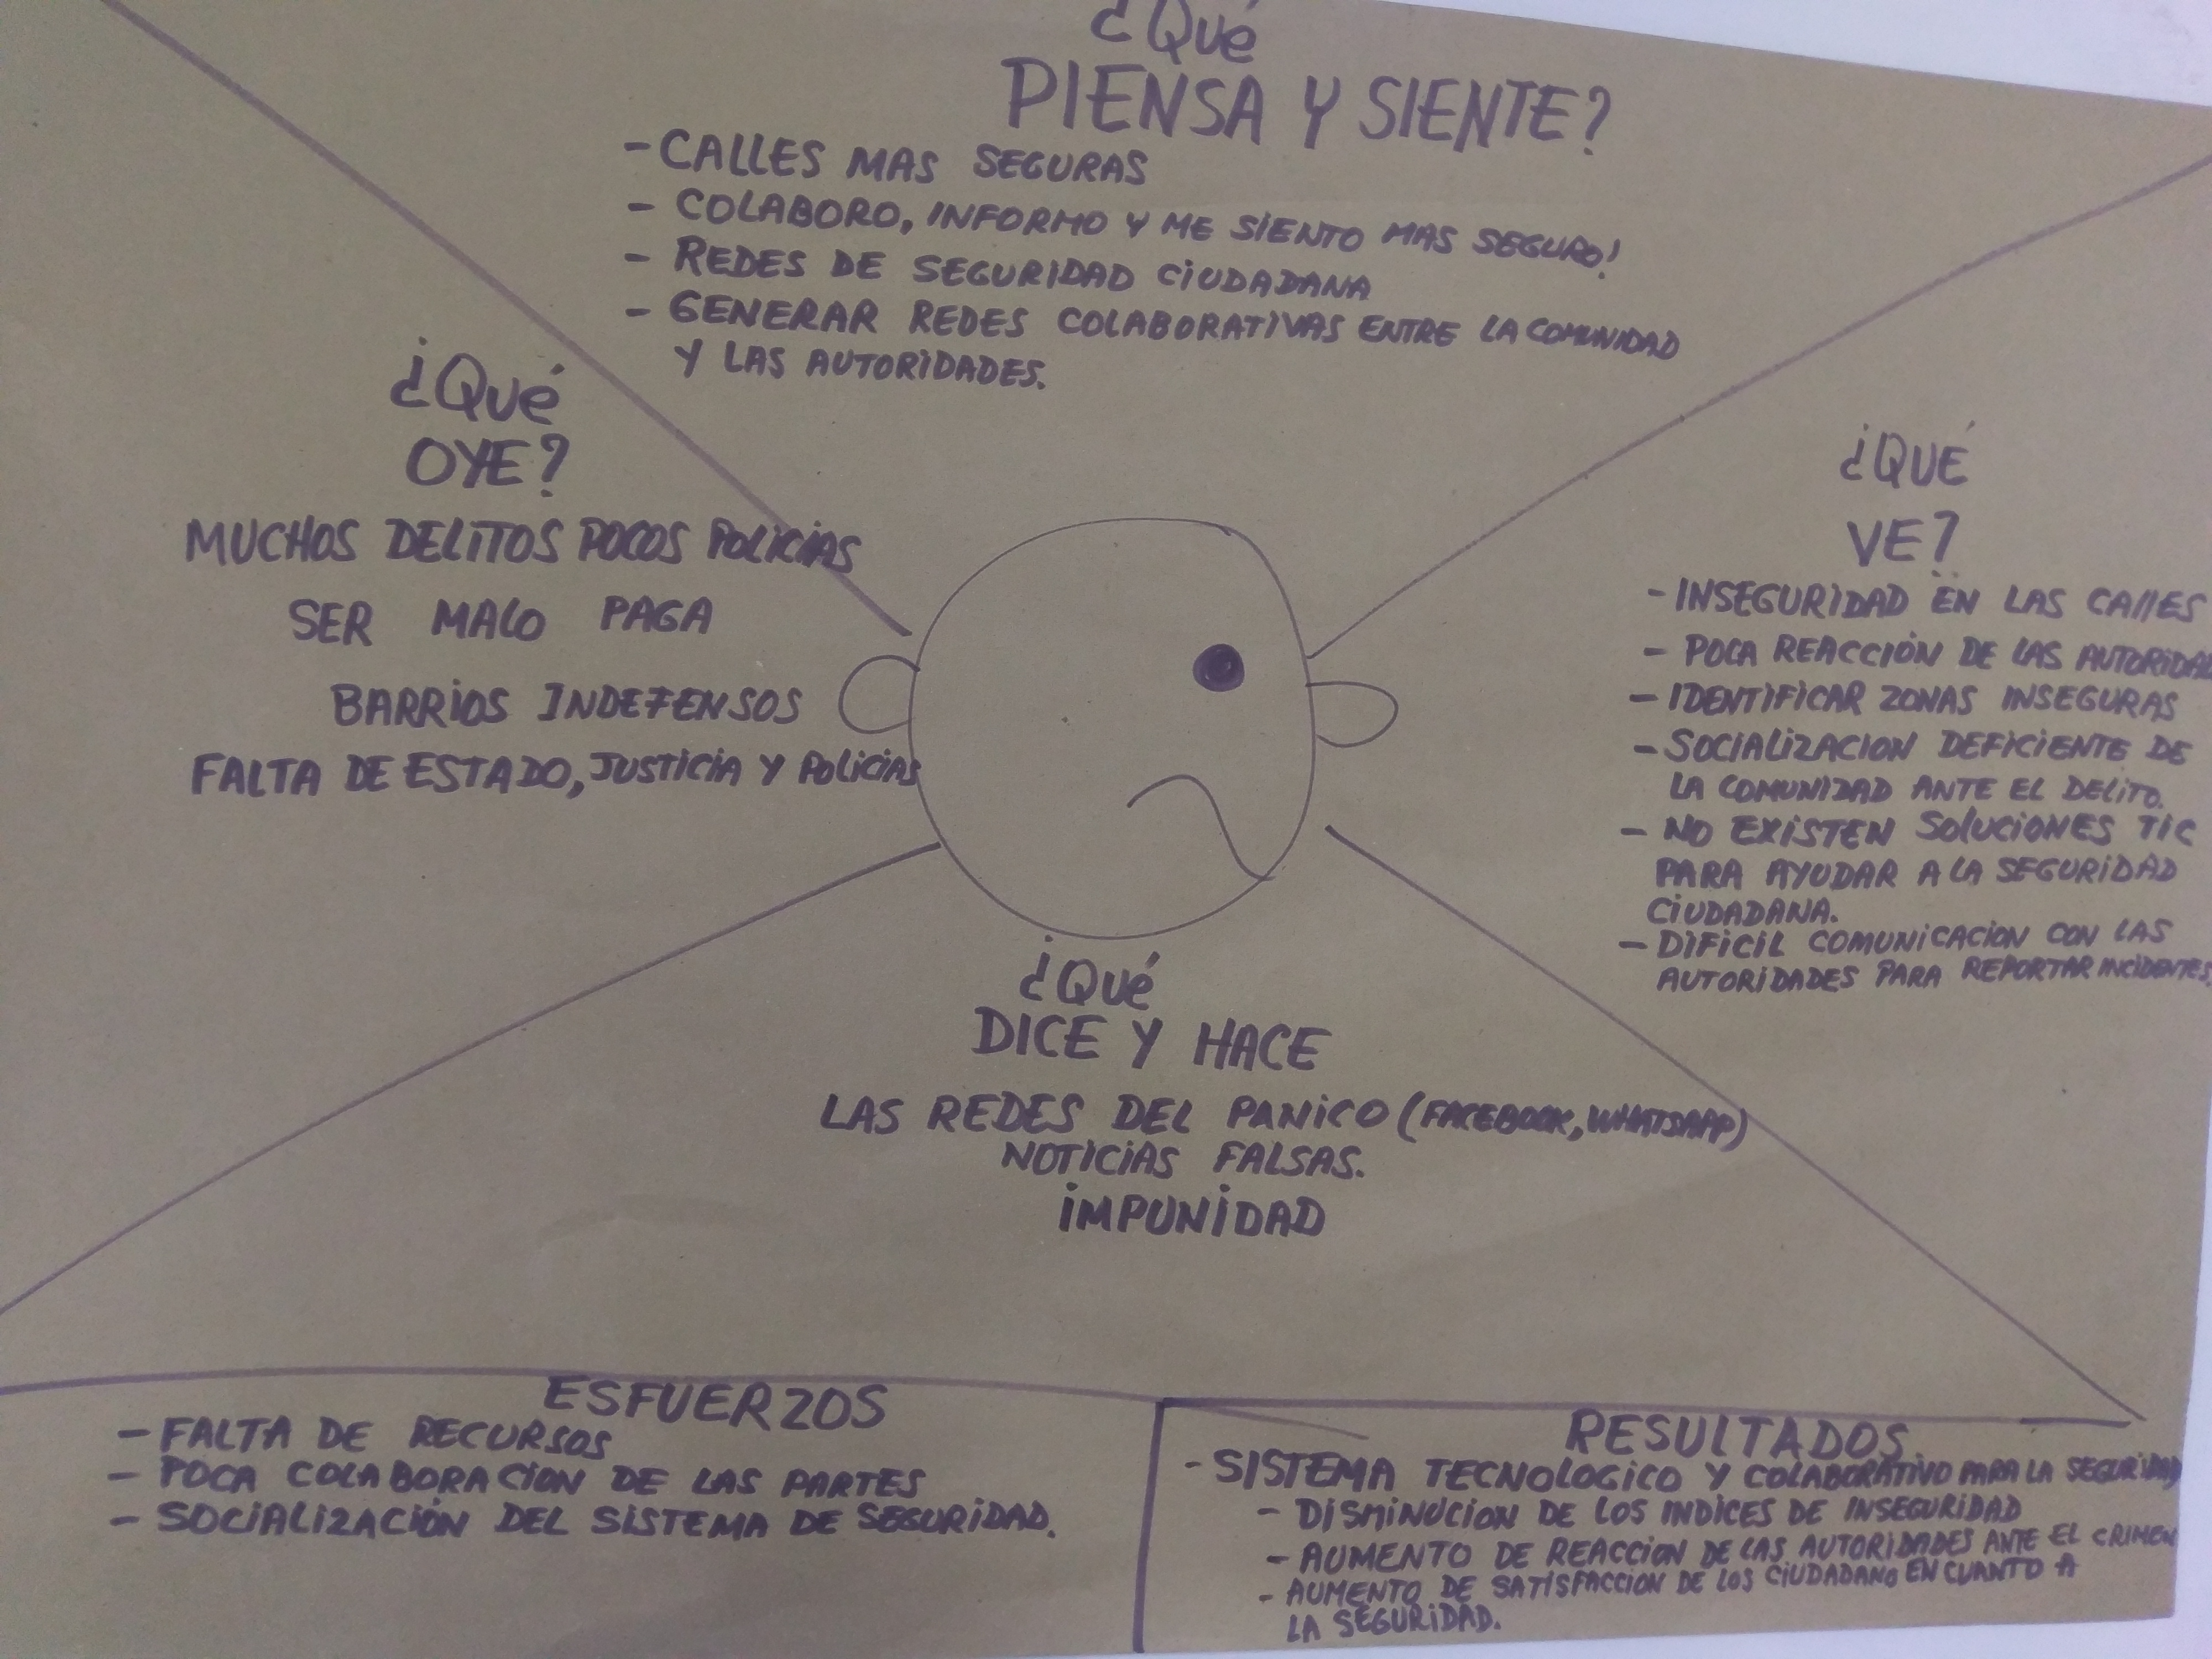 ¿Qué
PIENSA Y SIENTE?
- CALLES MAS SEGURAS
- COLABORO, INFORMO Y ME SIENTO MAS SEGURO!
- REDES DE SEGURIDAD CIUDADANA
- GENERAR REDES COLABORATIVAS ENTRE LA COMUNIDAD
Y LAS AUTORIDADES.
¿Qué
OYE?
MUCHOS DELITOS POCOS POLICIAS
SER MALO PAGA
BARRIOS INDEFENSOS
FALTA DE ESTADO, JUSTICIA Y POLICIAS
¿QUÉ
VE?
- INSEGURIDAD EN LAS CALLES
- POCA REACCIÓN DE LAS
- IDENTIFICAR ZONAS INSEGURAS
- SOCIALIZACION DEFICIENTE DE
LA COMUNIDAD ANTE EL DELITO.
- NO EXISTEN SOLUCIONES TIC
PARA AYUDAR A LA SEGURIDAD
CIUDADANA.
- DIFICIL COMUNICACION CON LAS
AUTORIDADES PARA REPORTAR INCIDENTES.
¿Qué
DICE Y HACE
LAS REDES DEL PANICO (FACEBOOK, WHATSAPP)
NOTICIAS FALSAS.
IMPUNIDAD
ESFUERZOS
- FALTA DE RECURSOS
- POCA COLABORACION DE LAS PARTES
- SOCIALIZACIÓN DEL SISTEMA DE SEGURIDAD.
RESULTADOS
- SISTEMA TECNOLOGICO Y COLABORATIVO PARA LA SEGURIDAD
- DISMINUCION DE LOS INDICES DE INSEGURIDAD
- AUMENTO DE REACCION DE LAS AUTORIDADES ANTE EL CRIMEN
- AUMENTO DE SATISFACCION DE LOS CIUDADANO EN CUANTO A
LA SEGURIDAD.